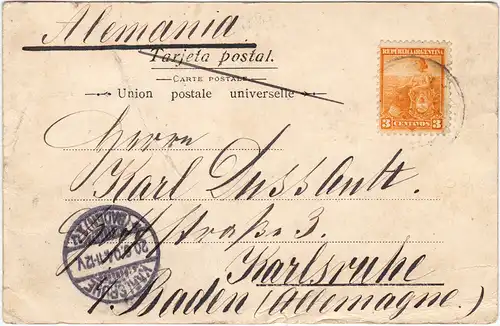 Alemania
Tarjeta postal.
CARTE POSTALE
Union postale universelle
REPUBLICA ARGENTINA
3 CENTAVOS 3
Herrn
Karl Dussault.
straße 3.
Karlsruhe
i. Baden (Allemagne.)
KARLSRUHE